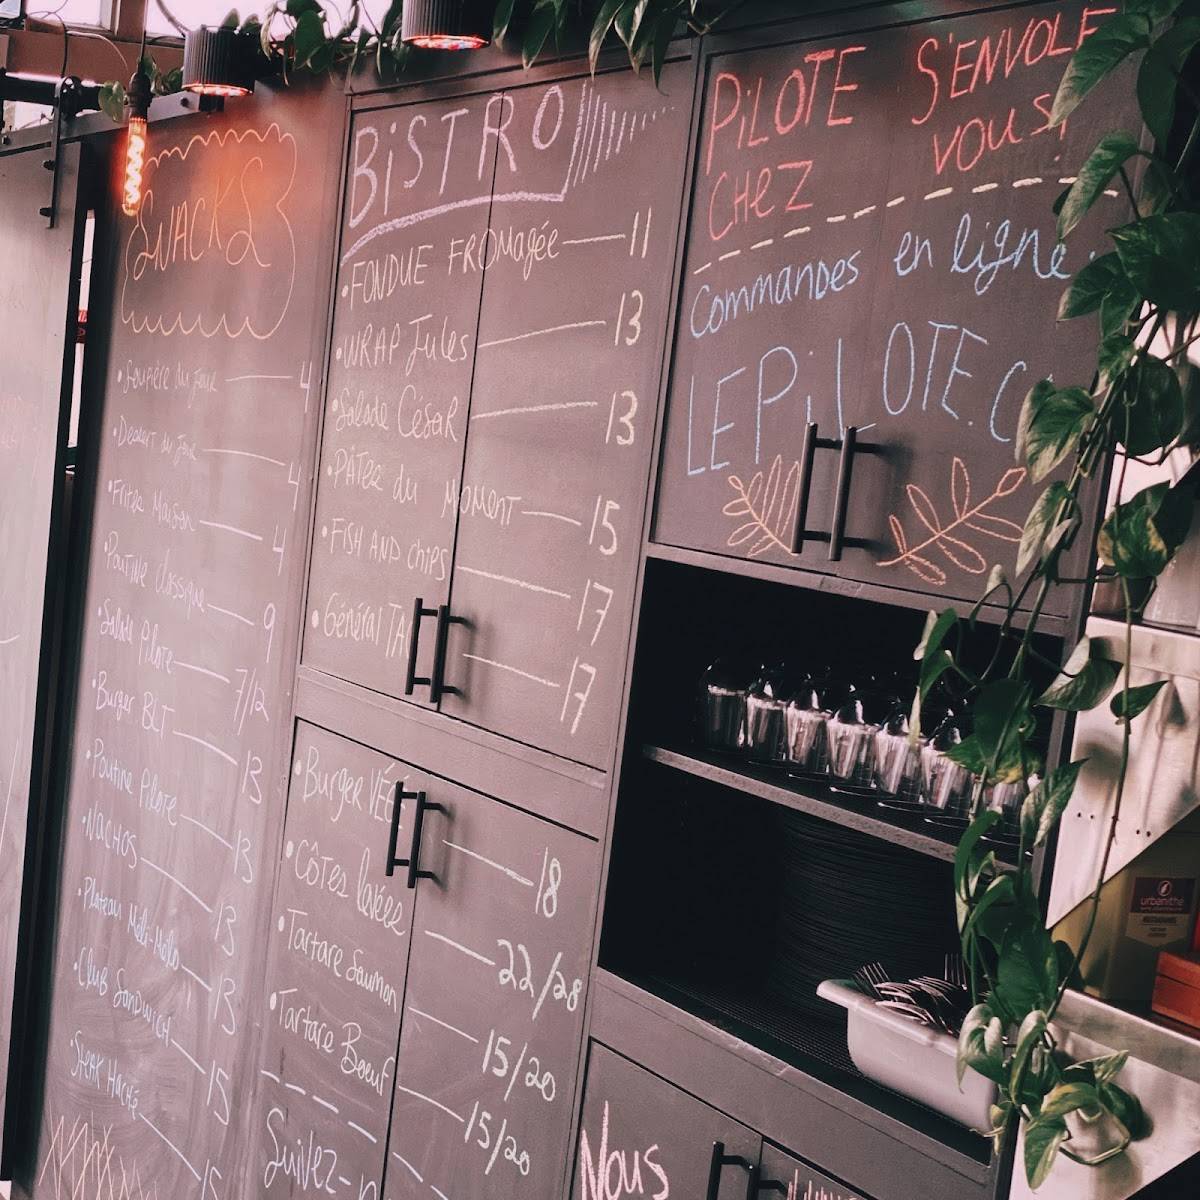 SNACKS
•Soupière du jour — 4
•Dessert du jour — 4
•Frites Maison — 4
•Poutine classique — 9
•Salade Pilote — 7/12
•Burger BLT — 13
•Poutine Pilote — 13
•NACHOS — 13
•Plateau Méli-Mélo — 13
•Club Sandwich — 15
•Steak Haché — 15
BiSTRO
•FONDUE FROMagée — 11
•WRAP Jules — 13
•Salade César — 13
•PÂTES du MOMENT — 15
•FISH AND chips — 17
•Général TA — 17
•Burger VÉGÉ — 18
•CÔTES levées — 22/28
•Tartare Saumon — 15/20
•Tartare Boeuf — 15/20
Suivez-n
PiLOTE S'ENVOLE
CHEZ VOUS!
Commandes en ligne:
LEPiLOTE.C
Nous
urbanithé